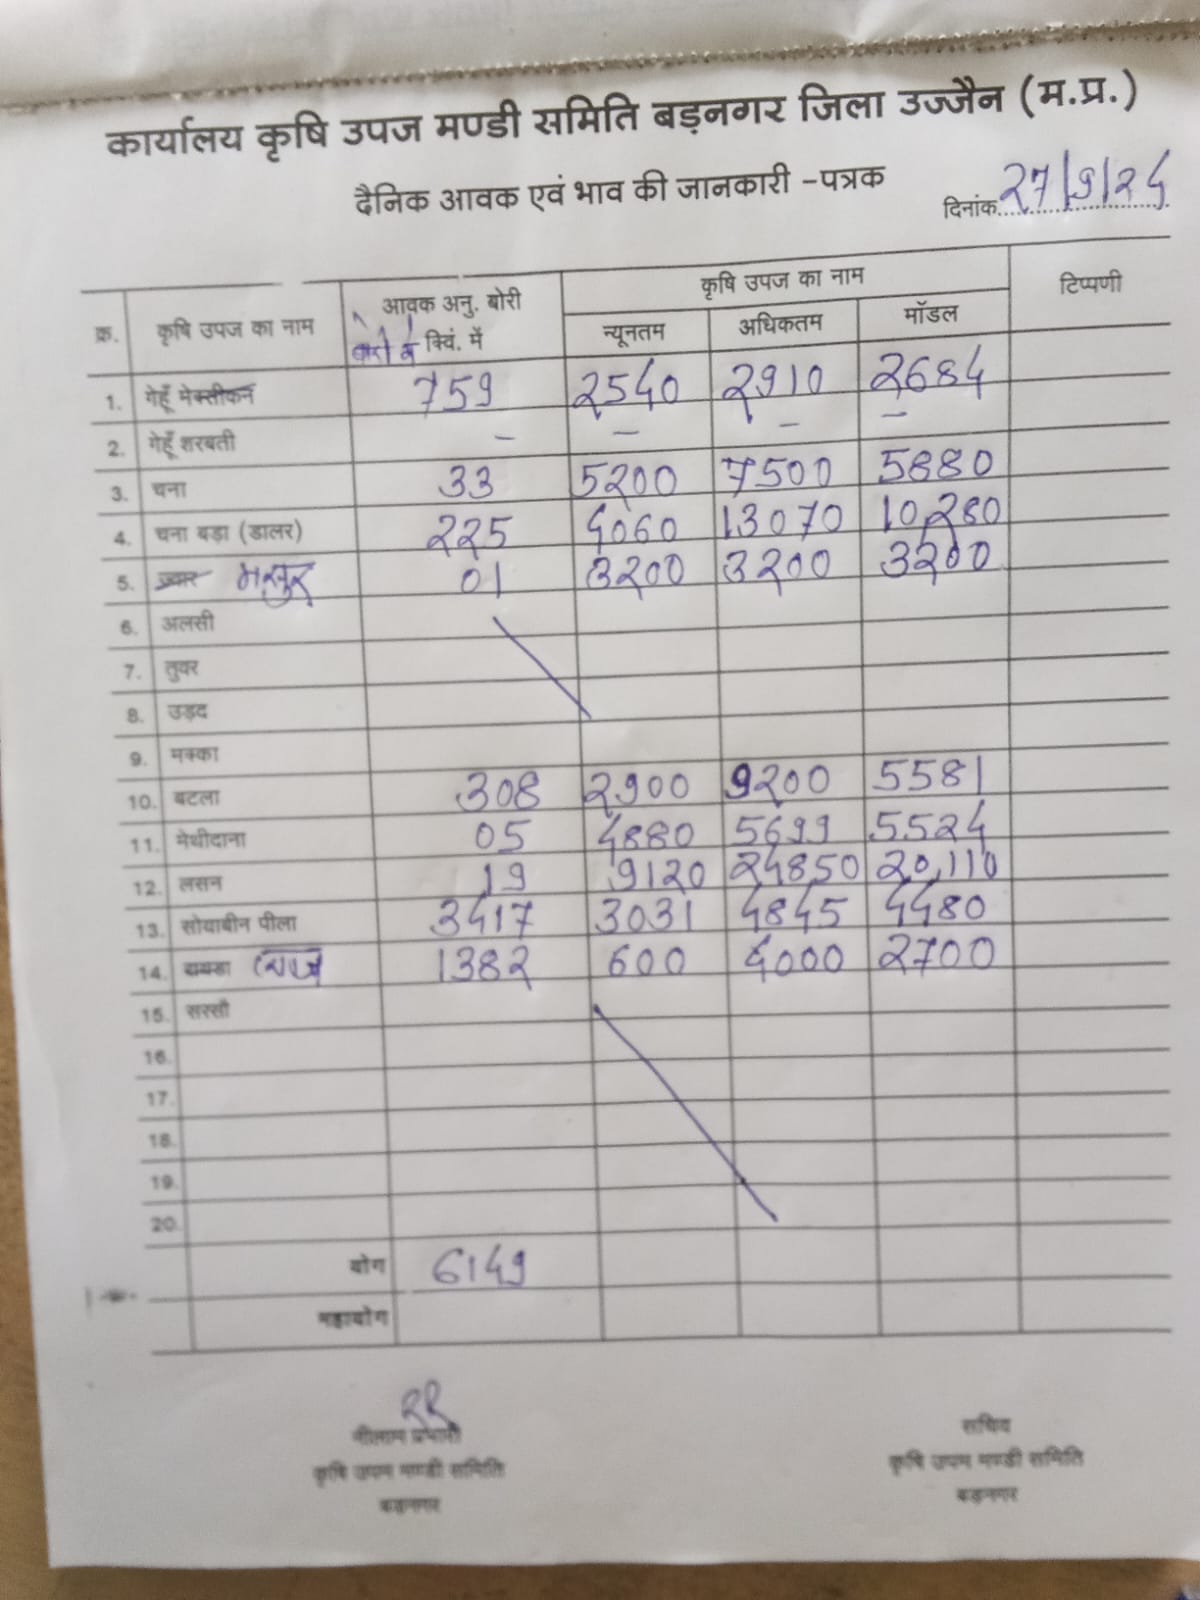 कार्यालय कृषि उपज मण्डी समिति बड़नगर जिला उज्जैन (म.प्र.)
दैनिक आवक एवं भाव की जानकारी -पत्रक
दिनांक 27/9/24
क्र. कृषि उपज का नाम आवक अनु. बोरी क्विं. में कृषि उपज का नाम टिप्पणी
न्यूनतम अधिकतम मॉडल
1. गेहूँ मेक्सीकन 759 2540 2910 2684
2. गेहूँ शरबती - - - -
3. चना 33 5200 7500 5880
4. चना बड़ा (डालर) 225 4060 13070 10,280
5. मसुर 01 3200 3200 3200
6. अलसी
7. तुवर
8. उड़द
9. मक्का
10. बटला 308 2900 9200 5581
11. मेथीदाना 05 4880 5699 5524
12. लसन 19 9120 24850 20,110
13. सोयाबीन पीला 3417 3031 4845 4480
14. 1382 600 4000 2700
15. सरसौ
16.
17.
18.
19.
20.
योग 6149
महायोग
नीलाम प्रभारी
कृषि उपज मण्डी समिति
बड़नगर
सचिव
कृषि उपज मण्डी समिति
बड़नगर